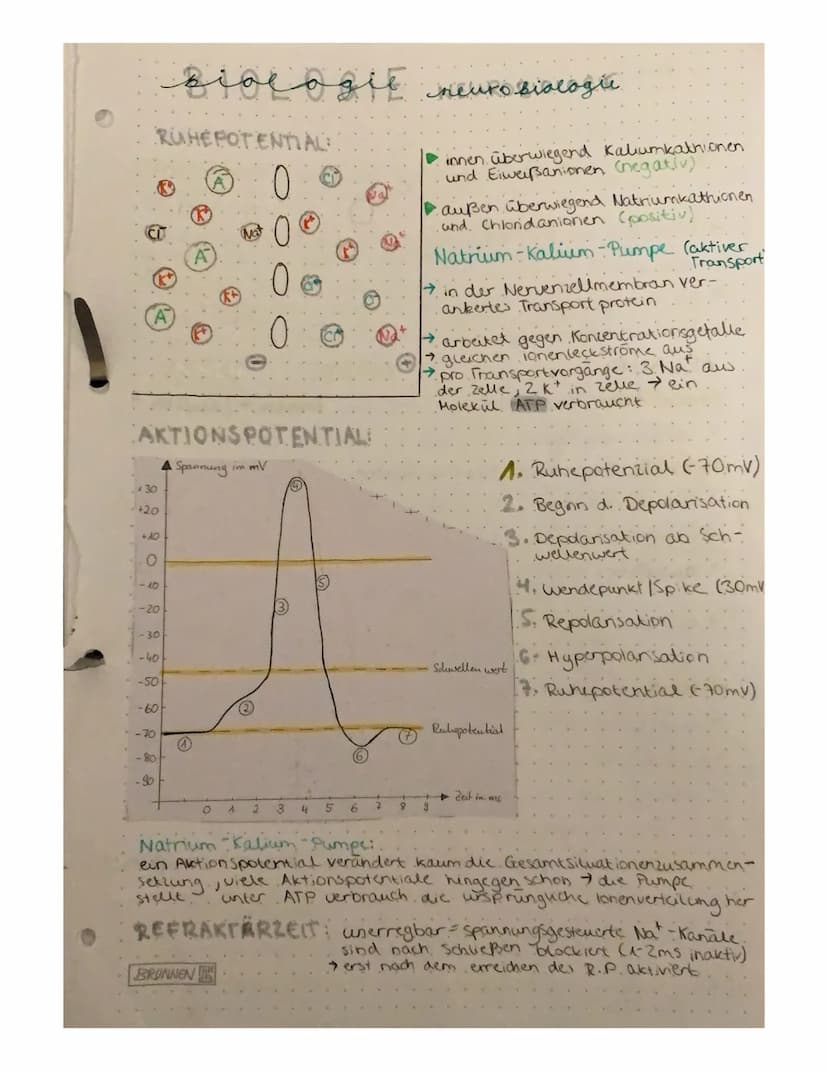 BIOLOGIE neurobiologie
RUHEPOTENTIAL:
K+ A- Cl- Na+
K+ K+
Cl- Na+ Na+
A- K+
K+
K+
A- Cl- Na+
K+
⊖ ⊕
▶ innen überwiegend Kaliumkathionen
und Eiweißanionen (negativ)
▶ außen überwiegend Natriumkathionen
und Chloridanionen (positiv)
Natrium-Kalium-Pumpe (aktiver
Transport
→ in der Nervenzellmembran ver-
ankertes Transportprotein
→ arbeitet gegen Konzentrationsgefälle
→ gleichen Ionenleckströme aus
→ pro Transportvorgänge: 3 Na+ aus
der Zelle, 2 K+ in Zelle → ein
Molekül ATP verbraucht
AKTIONSPOTENTIAL:
Spannung in mV
+30
+20
+10
0
-10
-20
-30
-40
-50
-60
-70
-80
-90
① ② ③ ④ ⑤ ⑥ ⑦
Schwellenwert
Ruhepotential
0 1 2 3 4 5 6 7 8 9
Zeit in ms
1. Ruhepotenzial (-70mV)
2. Beginn d. Depolarisation
3. Depolarisation ab Sch-
wellenwert
4. Wendepunkt/Spike (30mV
5. Repolarisation
6. Hyperpolarisation
7. Ruhepotential (-70mV)
Natrium-Kalium-Pumpe:
ein Aktionspotential verändert kaum die Gesamtsituationenzusammen-
setzung, viele Aktionspotentiale hingegen schon → die Pumpe
stellt unter ATP verbrauch die ursprüngliche Ionenverteilung her
REFRAKTÄRZEIT: unerregbar = spannungsgesteuerte Na+-Kanäle
sind nach schließen blockiert (1-2ms inaktiv)
→ erst nach dem erreichen des R.P. aktiviert
BRUNNEN